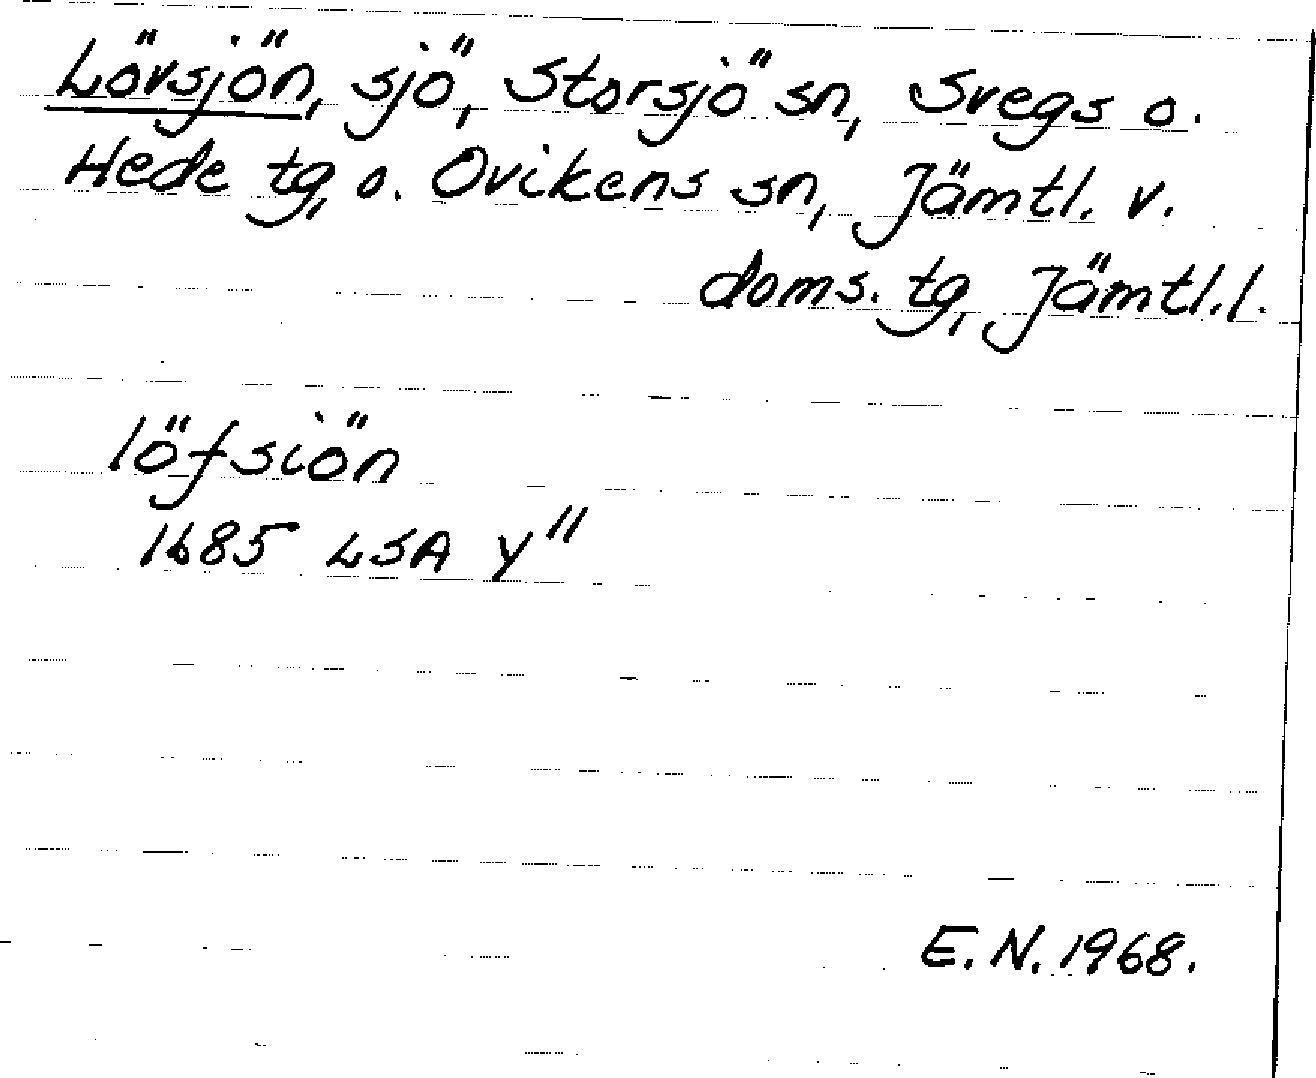 Lövsjön, sjö, Storsjö sn, Svegs o.
Hede tg, o. Ovikens sn, Jämtl. v.
doms. tg, Jämtl.l.
löfsiön
1685 LSA y"
E.N. 1968.